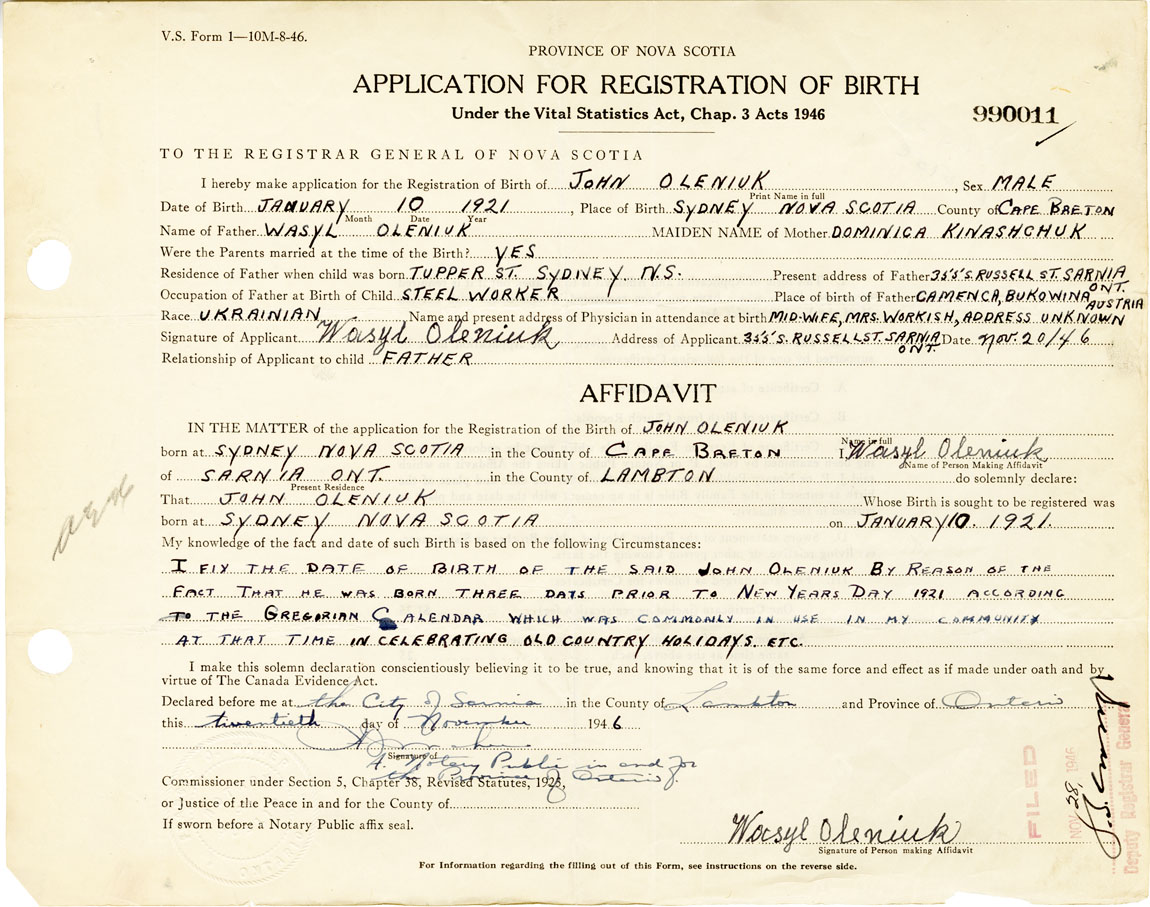 V.S. Form 1—10M-8-46.
PROVINCE OF NOVA SCOTIA
APPLICATION FOR REGISTRATION OF BIRTH
Under the Vital Statistics Act, Chap. 3 Acts 1946
990011
TO THE REGISTRAR GENERAL OF NOVA SCOTIA
I hereby make application for the Registration of Birth of JOHN OLENIUK, Sex MALE
Print Name in full
Date of Birth JANUARY 10 1921, Place of Birth SYDNEY NOVA SCOTIA County of CAPE BRETON
Month Date Year
Name of Father WASYL OLENIUK MAIDEN NAME of Mother DOMINICA KINASHCHUK
Were the Parents married at the time of the Birth? YES
Residence of Father when child was born TUPPER ST. SYDNEY N.S. Present address of Father 355 S. RUSSELL ST. SARNIA ONT.
Occupation of Father at Birth of Child STEEL WORKER Place of birth of Father CAMENCA, BUKOWINA AUSTRIA
Race UKRAINIAN Name and present address of Physician in attendance at birth MID-WIFE, MRS. WORKISH, ADDRESS UNKNOWN
Signature of Applicant Wasyl Oleniuk Address of Applicant 355 S. RUSSELL ST. SARNIA ONT. Date Nov. 20/46
Relationship of Applicant to child FATHER
AFFIDAVIT
IN THE MATTER of the application for the Registration of the Birth of JOHN OLENIUK
Name in full
born at SYDNEY NOVA SCOTIA in the County of CAPE BRETON I, Wasyl Oleniuk
Name of Person Making Affidavit
of SARNIA ONT. in the County of LAMBTON do solemnly declare:
Present Residence
That JOHN OLENIUK Whose Birth is sought to be registered was
born at SYDNEY NOVA SCOTIA on JANUARY 10. 1921.
My knowledge of the fact and date of such Birth is based on the following Circumstances:
I FIX THE DATE OF BIRTH OF THE SAID JOHN OLENIUK BY REASON OF THE
FACT THAT HE WAS BORN THREE DAYS PRIOR TO NEW YEARS DAY 1921 ACCORDING
TO THE GREGORIAN CALENDAR WHICH WAS COMMONLY IN USE IN MY COMMUNITY
AT THAT TIME IN CELEBRATING OLD COUNTRY HOLIDAYS. ETC.
I make this solemn declaration conscientiously believing it to be true, and knowing that it is of the same force and effect as if made under oath and by
virtue of The Canada Evidence Act.
Declared before me at the City of Sarnia in the County of Lambton and Province of Ontario
this twentieth day of November 1946
Signature of
A Notary Public in and for
the Province of Ontario.
Commissioner under Section 5, Chapter 38, Revised Statutes, 1923,
or Justice of the Peace in and for the County of
If sworn before a Notary Public affix seal.
Wasyl Oleniuk
Signature of Person making Affidavit
For Information regarding the filling out of this Form, see instructions on the reverse side.
FILED
NOV 28, 1946
Deputy Registrar General